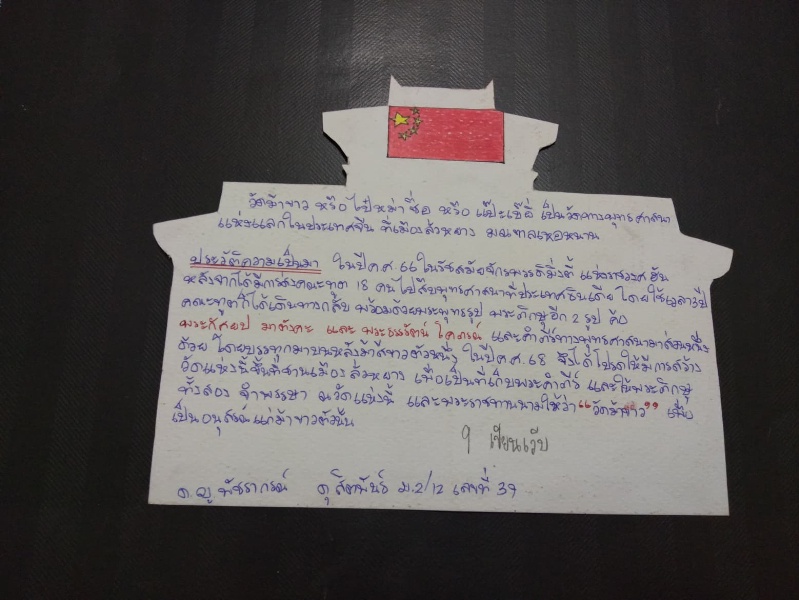 วัดม้าขาว หรือ ไป๋หม่าซื่อ หรือ แป๊ะเบ๊ยี่ เป็นวัดทางพุทธศาสนา
แห่งแรกในประเทศจีน ที่เมืองลั่วหยาง มณฑลเหอหนาน
ประวัติความเป็นมา ในปีค.ศ 66 ในรัชสมัยจักรพรรดิมิ่งตี้ แห่งราชวงศ์ฮั่น
หลังจากได้มีการส่งคณะทูต 18 คนไปสืบพุทธศาสนาที่ประเทศอินเดีย โดยใช้เวลา 3 ปี
คณะทูตก็ได้เดินทางกลับ พร้อมด้วยพระพุทธรูป พระภิกษุอีก 2 รูป คือ
พระกัสยป มาตังคะ และ พระธรรมรัตน์ โคภรณ์ และคัมภีร์ทางพุทธศาสนามาส่วนหนึ่ง
ด้วย โดยบรรทุกมาบนหลังม้าสีขาวตัวหนึ่ง ในปีค.ศ. 68 จึงได้โปรดให้มีการสร้าง
วัดแห่งนี้ขึ้นที่ชานเมืองลั่วหยาง เพื่อเป็นที่เก็บพระคัมภีร์ และให้พระภิกษุ
ทั้งสอง จำพรรษา ณ วัดแห่งนี้ และพระราชทานนามให้ว่า "วัดม้าขาว" เพื่อ
เป็นอนุสรณ์แก่ม้าขาวตัวนั้น
9 เขียนเว็บ
ด.ญ พัชราภรณ์ ดุสิตพันธ์ ม.2/12 เลขที่ 37